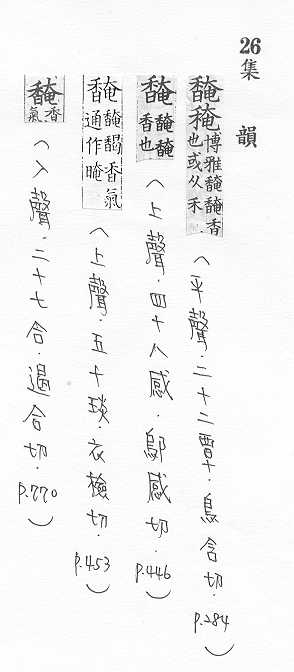 26集韻
馣䅖博雅馣馣香也或从禾（平聲．二十二覃．烏含切．p.284）
馣馣馣香也（上聲．四十八感．鄔感切．p.446）
馣馣馤香氣通作晻（上聲．五十琰．衣檢切．p.453）
馣香氣（入聲．二十七合．遏合切．p.770）